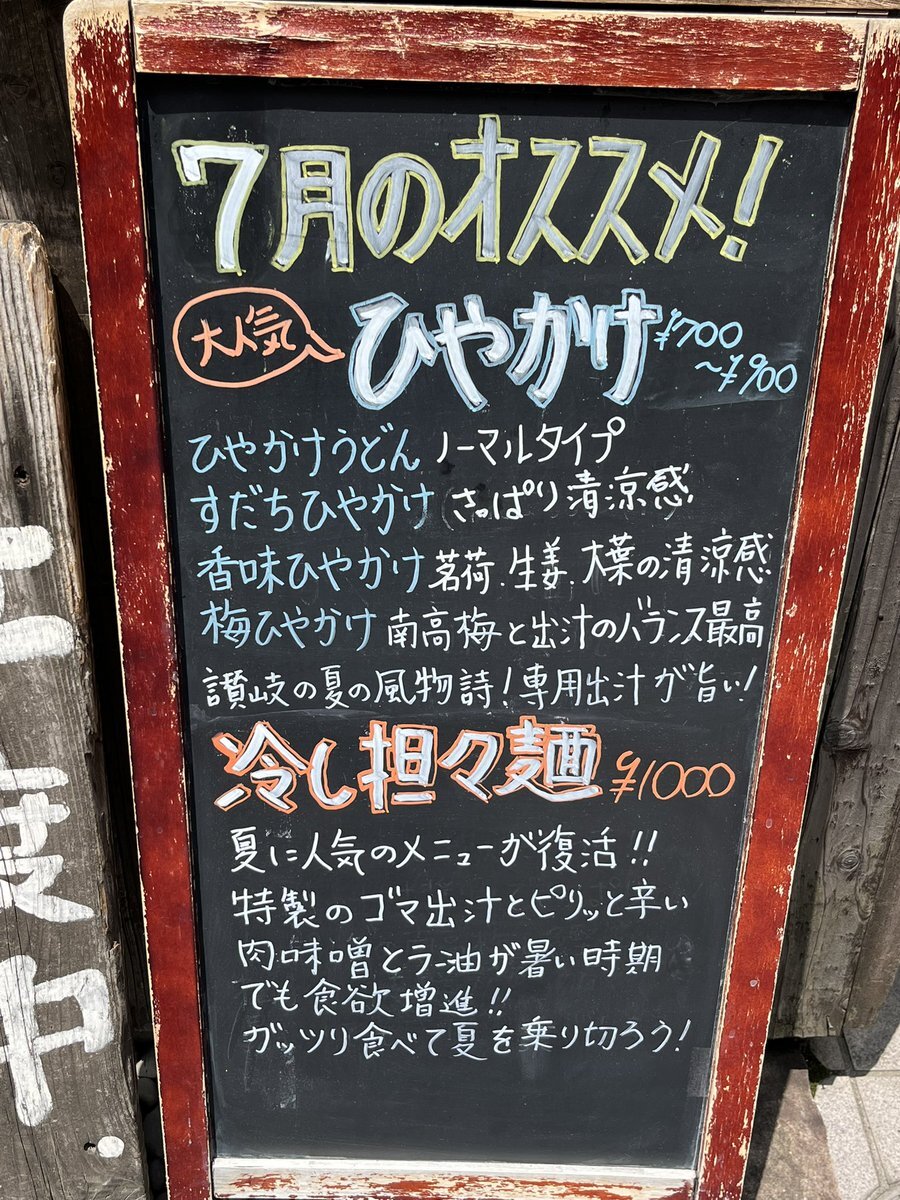 7月のオススメ!
大人気 ひやかけ ¥700
~¥900
ひやかけうどん ノーマルタイプ
すだちひやかけ さっぱり清涼感
香味ひやかけ 茗荷.生姜.大葉の清涼感
梅ひやかけ 南高梅と出汁のバランス最高
讃岐の夏の風物詩!専用出汁が旨い!
冷し担々麺 ¥1000
夏に人気のメニューが復活!!
特製のゴマ出汁とピリッと辛い
肉味噌とラー油が暑い時期
でも食欲増進!!
ガッツリ食べて夏を乗り切ろう!